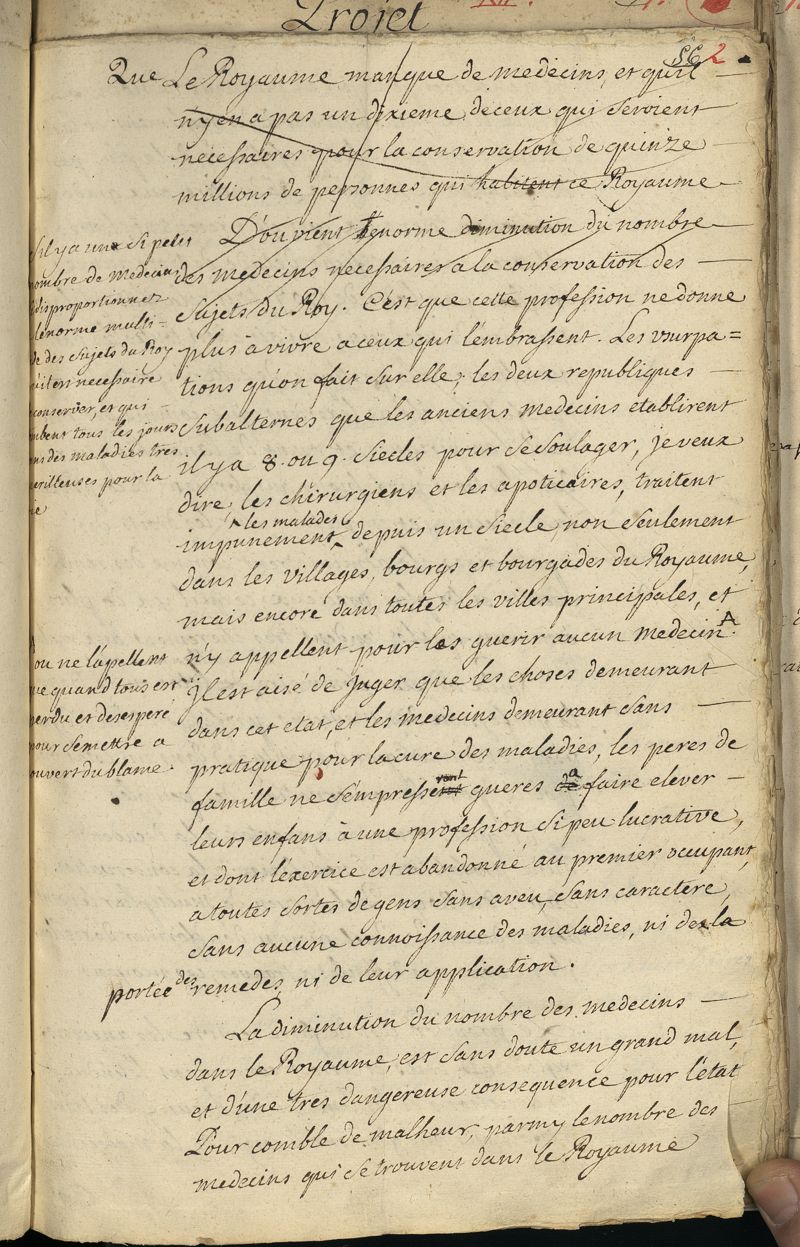 Projet
56 2
Que Le Royaume manque de medecins, et qu'il
n'y en a pas un dixieme de ceux qui seroient
necessaires pour la conservation de quinze
millions de personnes qui habitent ce Royaume
D'ou vient l'enorme diminution du nombre
des medecins necessaires a la conservation des
sujets du Roy. C'est que cette profession ne donne
plus à vivre a ceux qui l'embrassent. Les usurpa=
tions qu'on fait sur elle; les deux republiques
subalternes que les anciens medecins etablirent
il y a 8. ou 9. siecles pour se soulager, je veux
dire, les chirurgiens et les apoticaires, traitent
les malades
impunement, depuis un siecle, non seulement
dans les villages, bourgs et bourgades du Royaume,
mais encore dans toutes les villes principales, et
n'y appellent pour les guerir aucun medecin. A
Il est aisé de juger que les choses demeurant
dans cet etat, et les medecins demeurant sans
pratique pour la cure des maladies, les peres de
famille ne s'empresseront gueres a faire elever
leurs enfans à une profession si peu lucrative,
et dont l'exercice est abandonné au premier occupant,
a toutes sortes de gens sans aveu, sans caractere,
sans aucune connoissance des maladies, ni de la
portée des remedes, ni de leur application.
La diminution du nombre des medecins
dans le Royaume, est sans doute un grand mal,
et d'une tres dangereuse consequence pour l'état
Pour comble de malheur, parmy le nombre des
medecins qui se trouvent dans le Royaume
s'il y a un si petit
nombre de medecins
disproportionnez
l'enorme multi=
de des sujets du Roy
qu'il est necessaire
conserver, et qui
tombent tous les jours
dans des maladies tres
perilleuses pour la
vie
A
ou ne l'apellent
que quand tous est
perdu et deseperé
pour se mettre a
couvert du blame.